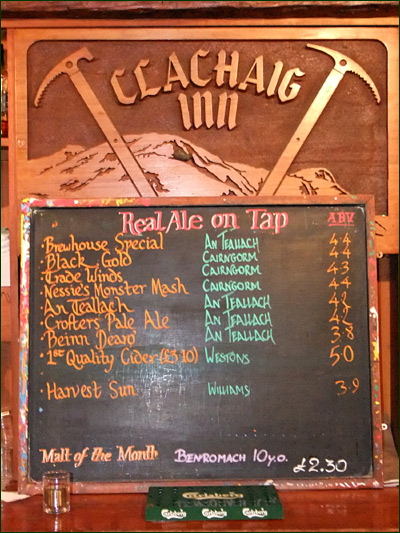 CLACHAIG
INN
Real Ale on Tap ABV
· Brewhouse Special An Teallach 4.4
· Black Gold Cairngorm 4.4
· Trade Winds Cairngorm 4.3
· Nessie's Monster Mash Cairngorm 4.4
· An Teallach An Teallach 4.2
· Crofters Pale Ale An Teallach 4.2
· Beinn Dearg An Teallach 3.8
· 1st Quality Cider (£3.10) Westons 5.0
· Harvest Sun Williams 3.9
Malt of the Month Benromach 10 y.o. £2.30
Carlsberg
Carlsberg Carlsberg Carlsberg